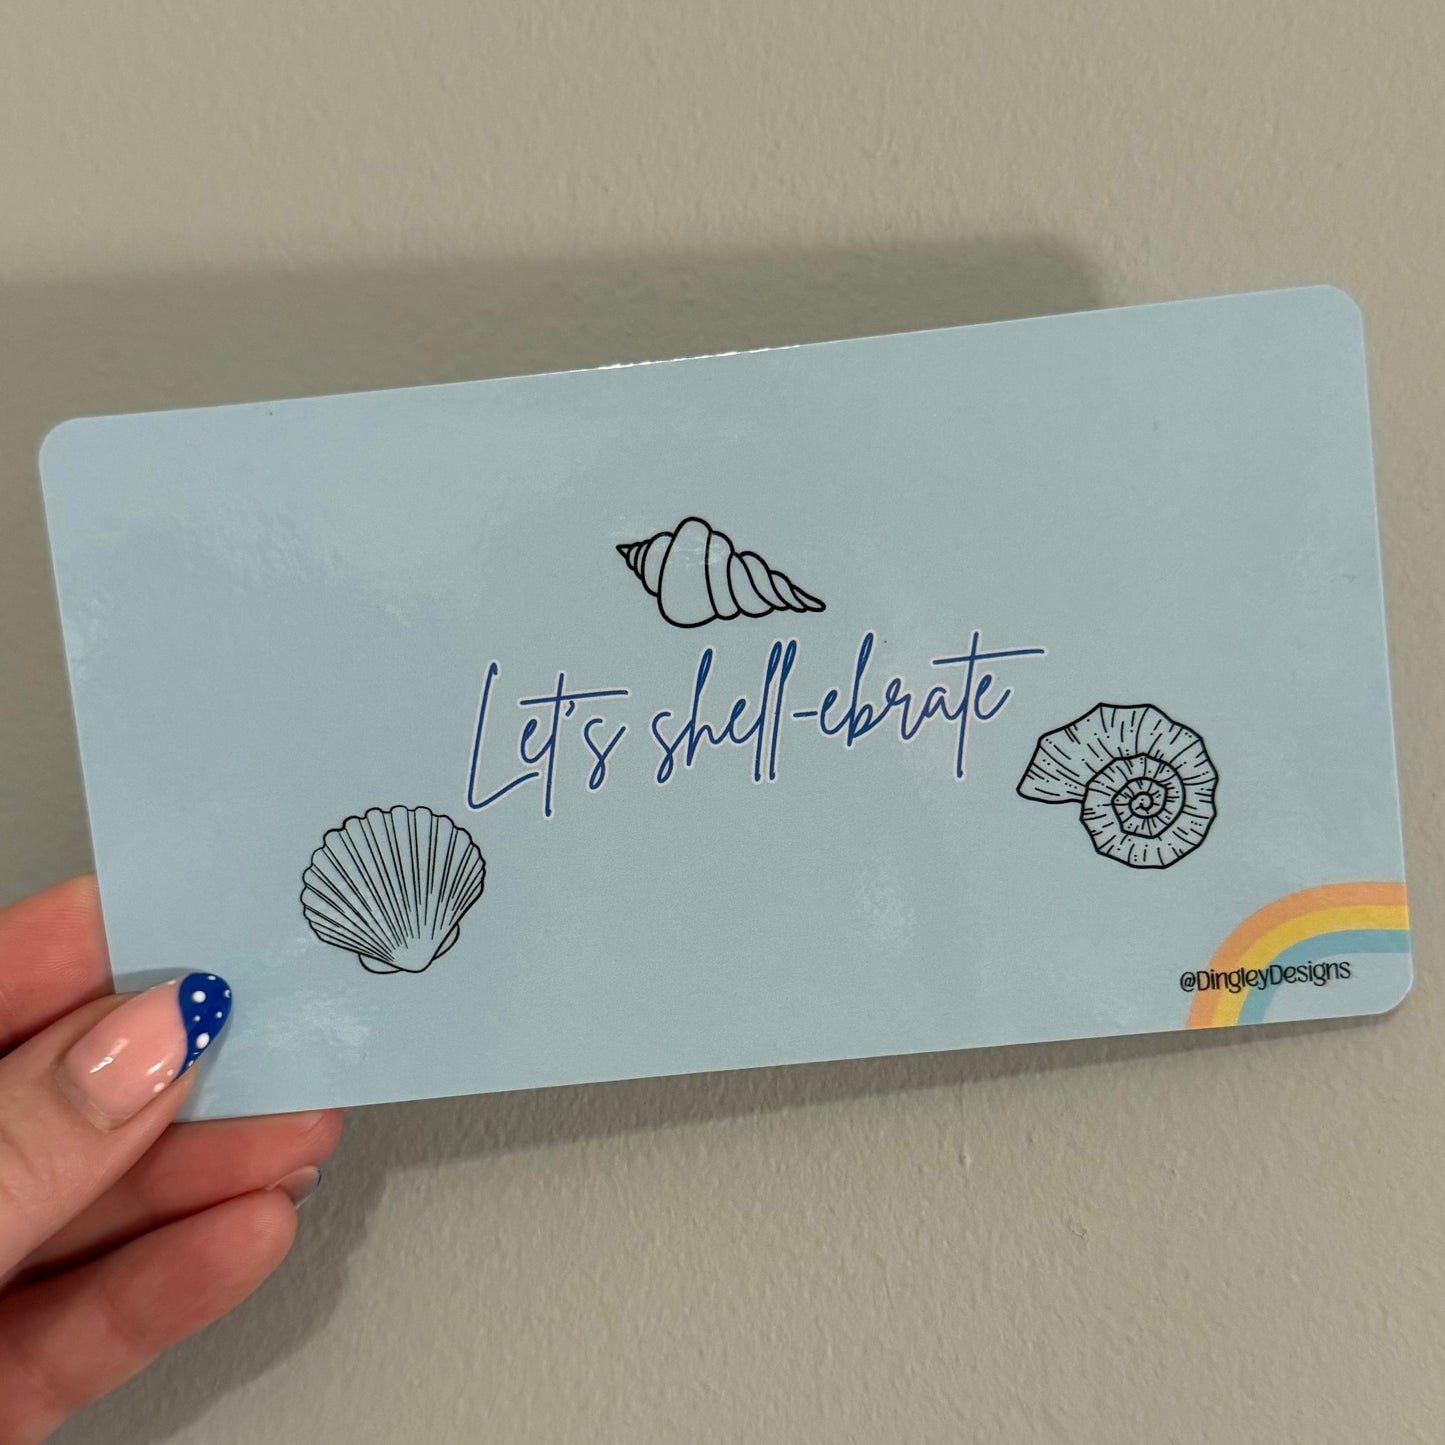 Let's shell-ebrate
@DingleyDesigns